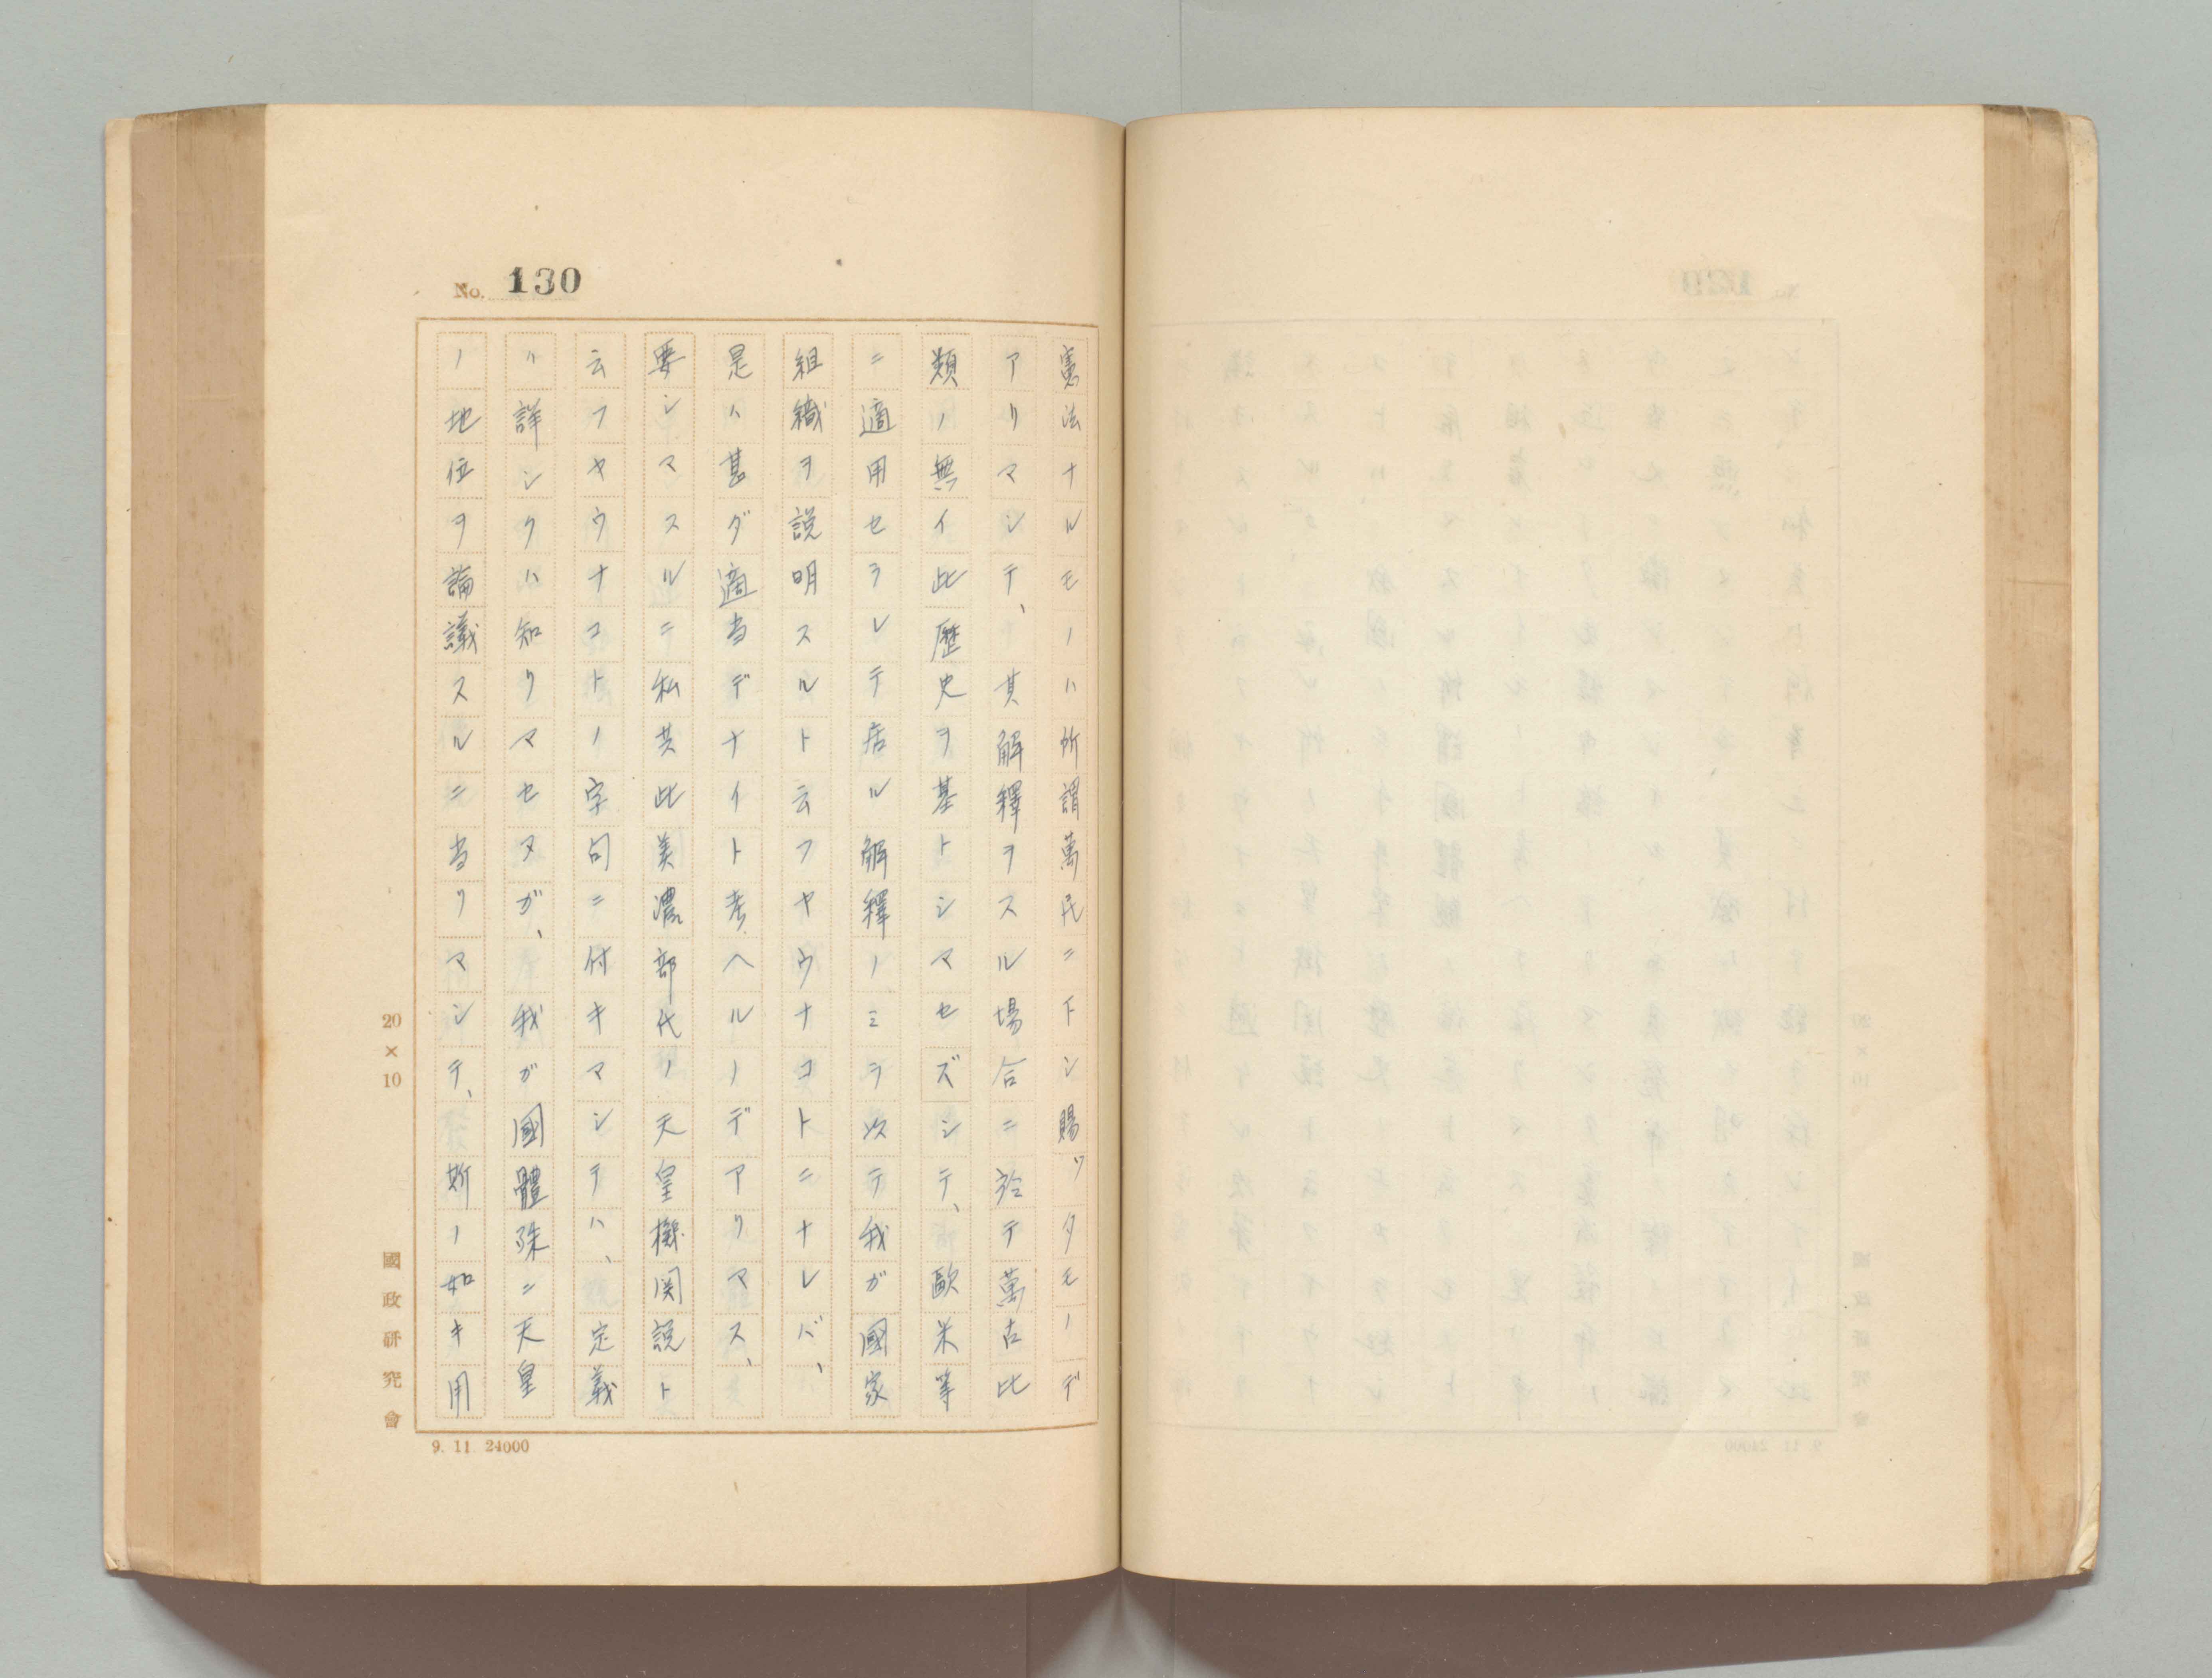 No. 130
憲法ナルモノハ所謂萬民ニ下シ賜ッタモノデ
アリマシテ、其解釋ヲスル場合ニ於テ萬古比
類ノ無イ此歴史ヲ基トシマセズシテ、歐米等
ニ適用セラレテ居ル解釋ノミヲ以テ我ガ國家
組織ヲ説明スルト云フヤウナコトニナレバ、
是ハ甚ダ適当デナイト考ヘルノデアリマス、
要シマスルニ私共此美濃部代ノ天皇機関説ト
云フヤウナコトノ字句ニ付キマシテハ、定義
ハ詳シクハ知リマセヌガ、我ガ國體殊ニ天皇
ノ地位ヲ論議スルニ当リマシテ、斯ノ如キ用
20×10
國政研究會
9. 11. 24000